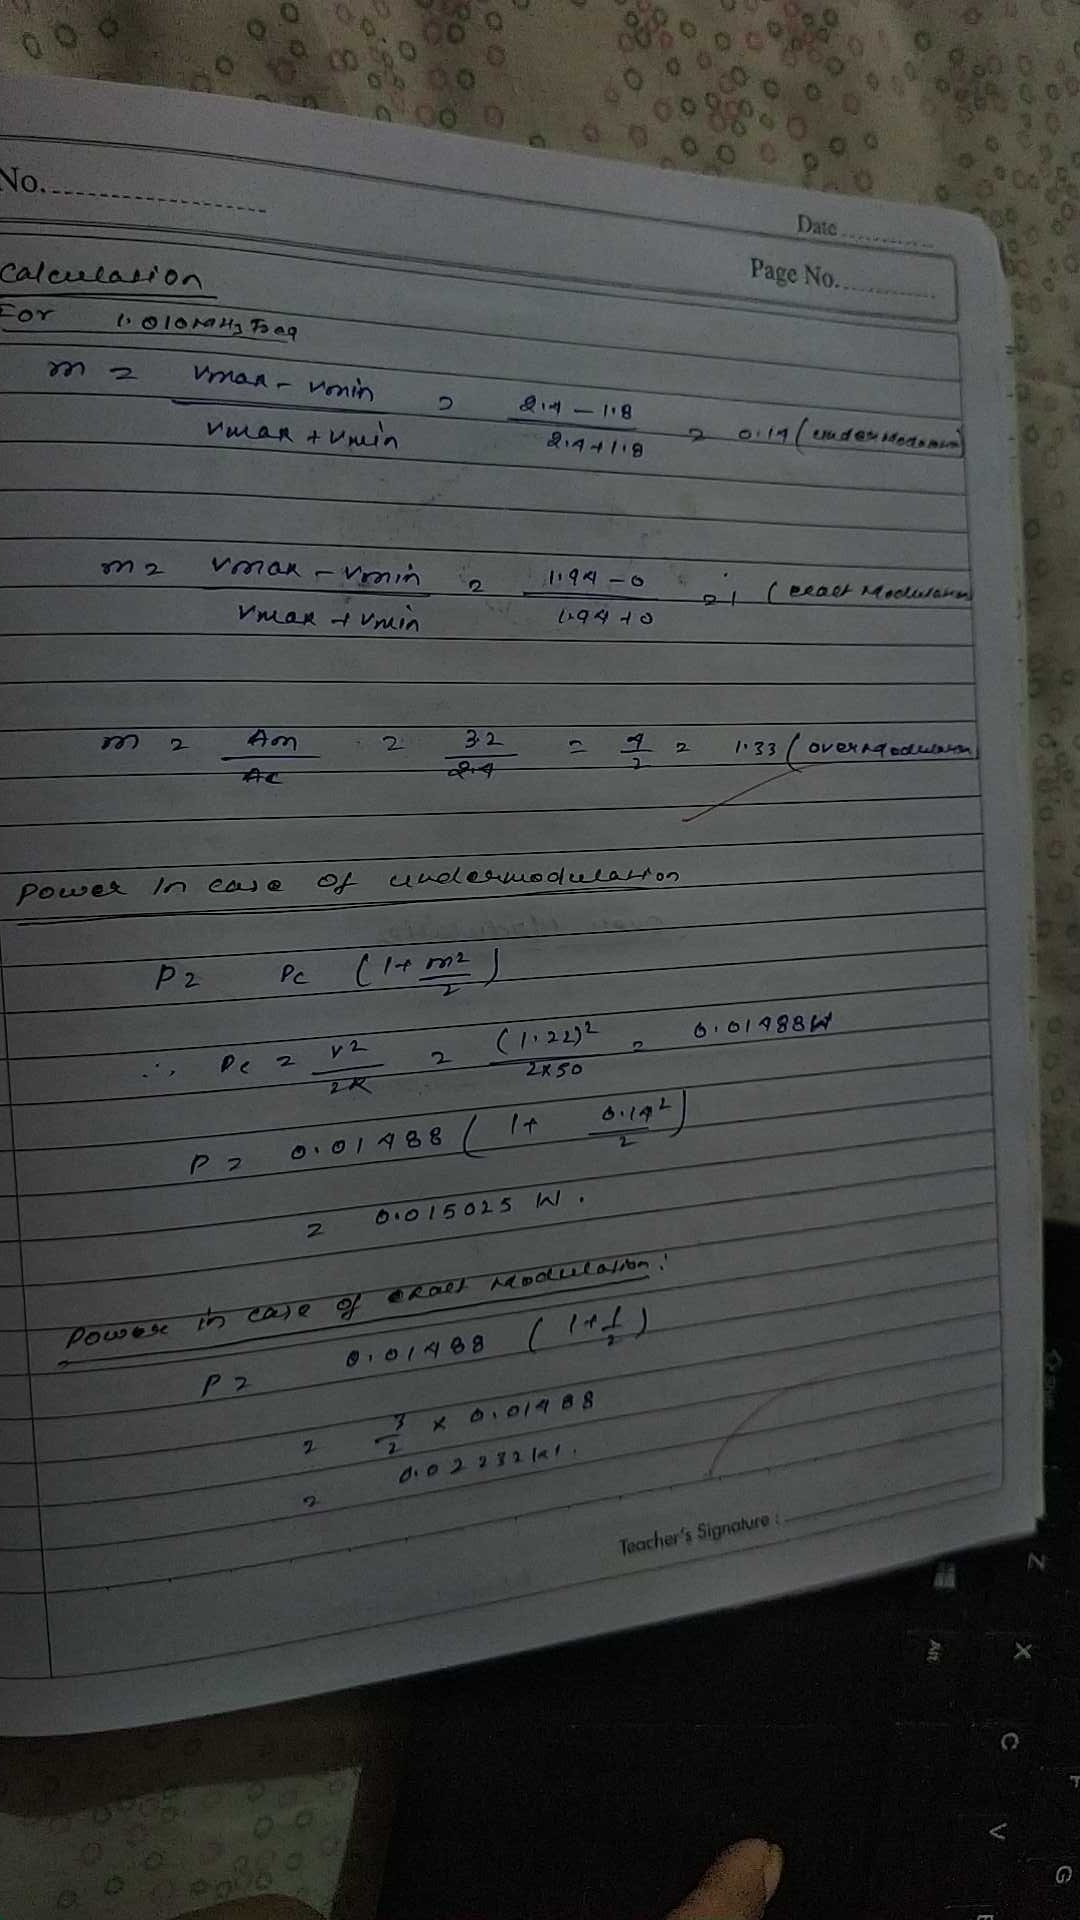 No.
Date
Page No.
Calculation
For 1.010MHz Freq
m = Vmax - Vmin / Vmax + Vmin = 2.4 - 1.8 / 2.4 + 1.8 = 0.14 (undermodulation)
m = Vmax - Vmin / Vmax + Vmin = 1.94 - 0 / 1.94 + 0 = 1 (exact Modulation)
m = Am / Ac = 3.2 / 2.4 = 4 / 2 = 1.33 (overModulation)
Power in case of undermodulation
P = Pc (1 + m2 / 2)
∴ Pc = V2 / 2R = (1.22)2 / 2x50 = 0.01488W
P = 0.01488 (1 + 0.142 / 2)
= 0.015025 W.
Power in case of exact Modulation:
P = 0.01488 (1 + 1 / 2)
= 3 / 2 x 0.01488
= 0.02232W.
Teacher's Signature :
Z
Alt
X
C
F
V
G